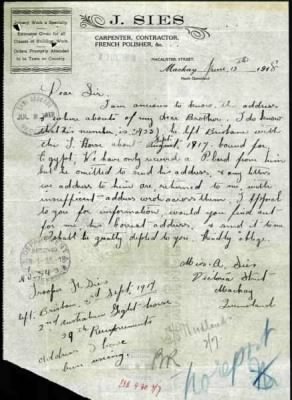 Joinery Work a Speciality
Estimates Given for all
Classes of Building Work.
Orders Promptly Attended
to in Town or Country
J. SIES
CARPENTER, CONTRACTOR,
FRENCH POLISHER, &c.
MACALISTER STREET,
Mackay June 13th 1918
North Queensland
Dear Sir.
I am anxious to know the address
& whereabouts of my dear Brother. I do know
that his number is 3933 & he left Brisbane with
the L. Horse about Sept August, 1917, bound for
Egypt, We have only received a P. Card from him
but he omitted to send his address, & any letters
we address to him are returned to me, with
insufficient address wrote across them. I appeal
to you for information, would you find out
for me his correct address, & send it to me
I shall be greatly obliged to you. Kindly oblige.
Miss. A. Sies
Victoria Street
Mackay
Queensland
Trooper H. Sies
left Brisbane 3rd Sept 1917
2nd Australian Light horse
29th Reinforcements
address I have
been using.
BR